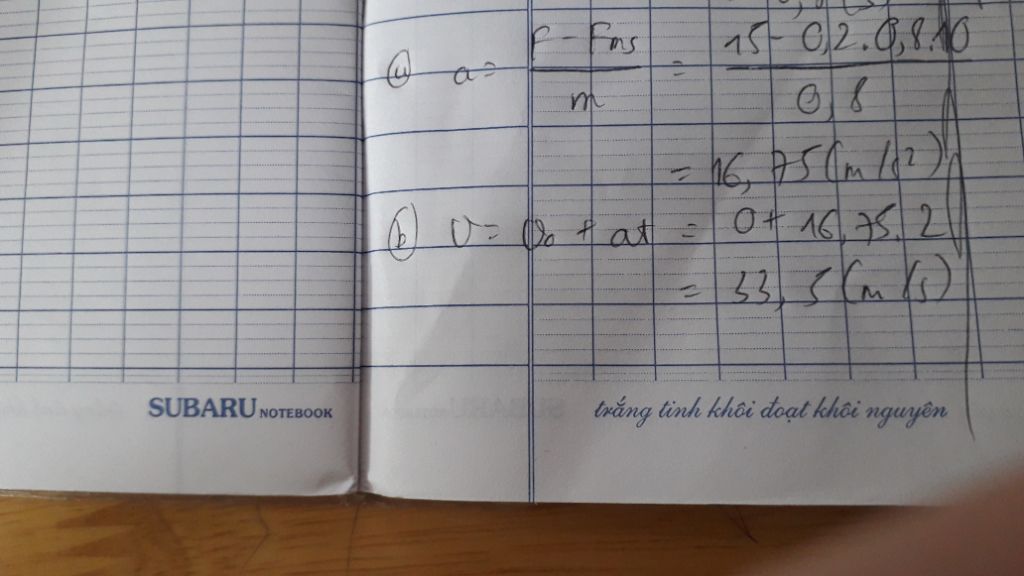 a a = F - Fms / m = 15 - 0,2.0,8.10 / 0,8
= 16,75 (m/s²)
b v = v₀ + at = 0 + 16,75.2
= 33,5 (m/s)
SUBARU NOTEBOOK
trắng tinh khôi đoạt khôi nguyên